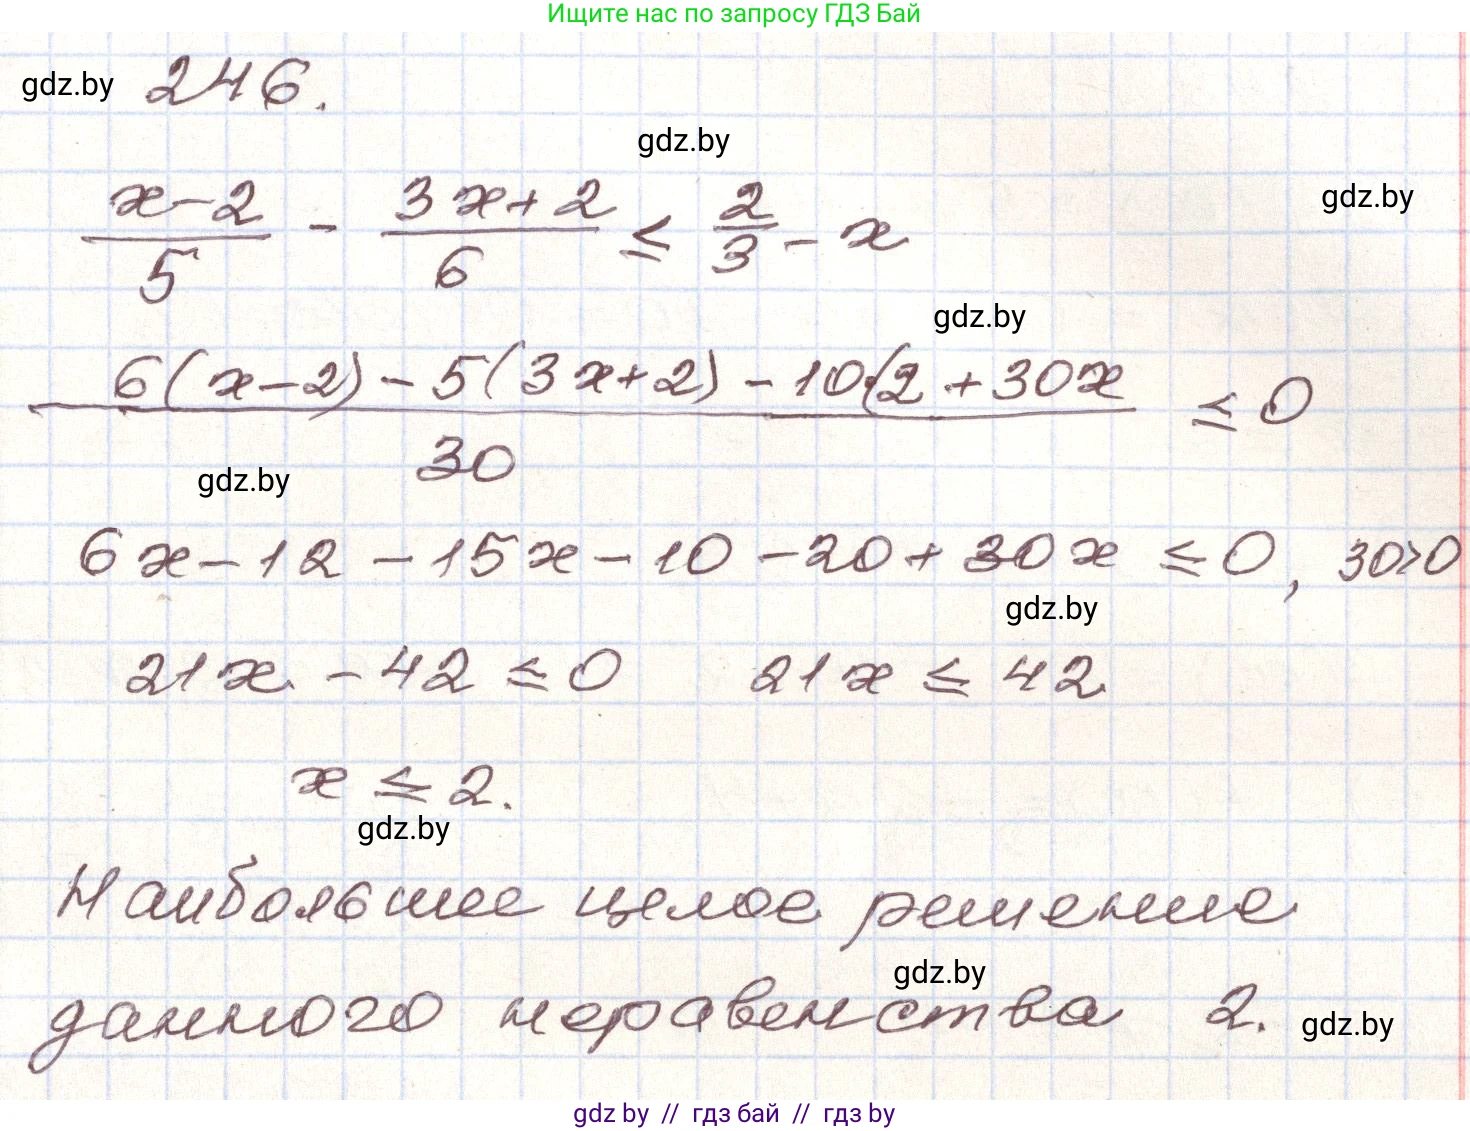 Ищите нас по запросу ГДЗ Бай
gdz.by 246.
gdz.by
gdz.by
(x-2)/5 - (3x+2)/6 ≤ 2/3 - x
gdz.by
(6(x-2) - 5(3x+2) - 10·2 + 30x)/30 ≤ 0
gdz.by
6x - 12 - 15x - 10 - 20 + 30x ≤ 0, 30>0
gdz.by
21x - 42 ≤ 0 21x ≤ 42
x ≤ 2.
gdz.by
Наибольшее целое решение
gdz.by
данного неравенства 2.
gdz.by
gdz by // гдз бай // гдз by